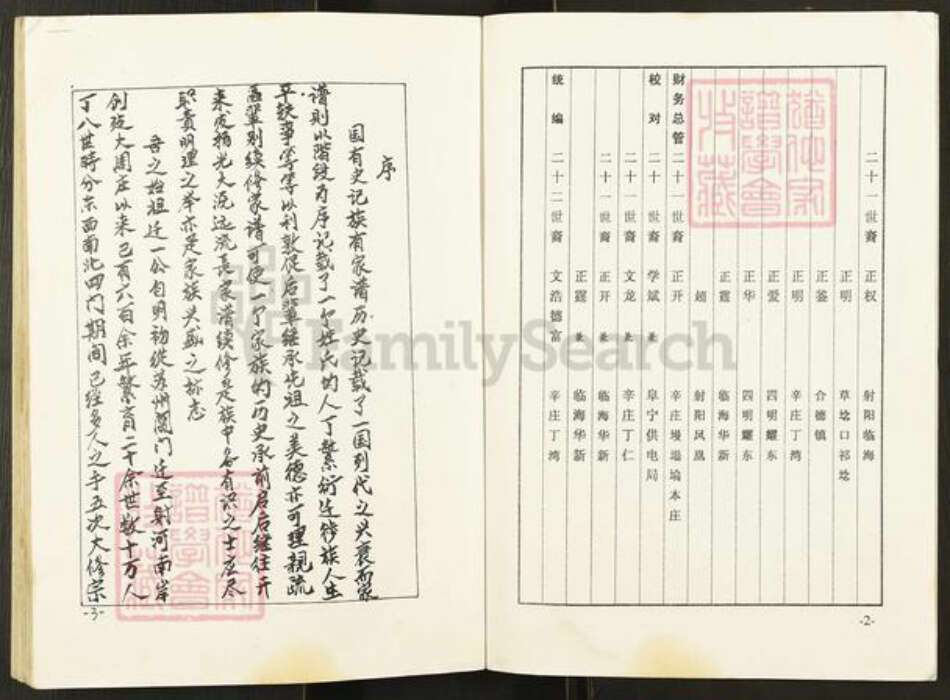 二十一世裔 正权 射阳临海
正明 草埝口祁埝
正鉴 合德镇
正明 辛庄丁湾
正爱 四明耀东
正华 四明耀东
正霆 临海华新
超 射阳凤凰
财务总管 二十一世裔 正开 辛庄墁塌塥本庄
校对 二十 世裔 学斌 兼 阜宁供电局
二十一世裔 文龙 兼 辛庄丁仁
二十一世裔 正开 兼 临海华新
正霆 兼 临海华新
统编 二十二世裔 文浩德富 辛庄丁湾
-2-
序
国有史记族有家谱历史记载了一国列代之兴衰而家
谱则以阶段为序记载了一个姓氏的人丁繁衍迁徙族人生
平轶事等等以利敦促后辈继承先祖之美德亦可理親疏
辈别续修家谱可使一个家族的历史承前启后继往开
来发扬光大源远流长家谱续修是族中各有识之士应尽
职责明理之举亦是家族兴盛之标志
吾之始祖迁一公自明初从苏州阊门迁至射河南岸
创址大周庄以来已有六百余年繁育二十余世数十万人
丁八世時分东西南北四门期间已经多人之手五次大修宗
-3-
猶他家譜學會收藏
猶他家譜學會收藏
FamilySearch